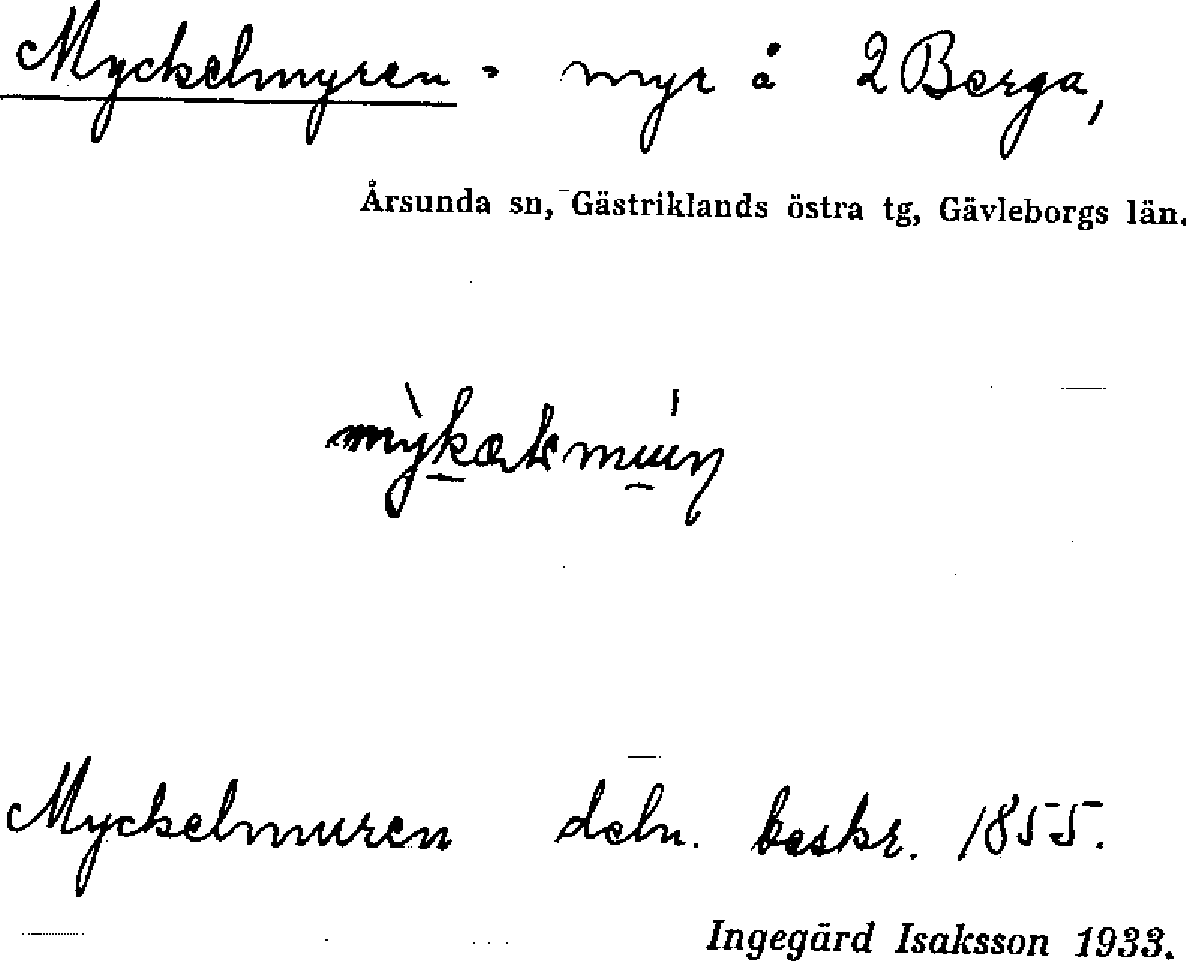 Myckelmyren - myr å 2 Berga,
Årsunda sn, Gästriklands östra tg, Gävleborgs län.
Myckelmuren deln. beskr. 1855.
Ingegärd Isaksson 1933.